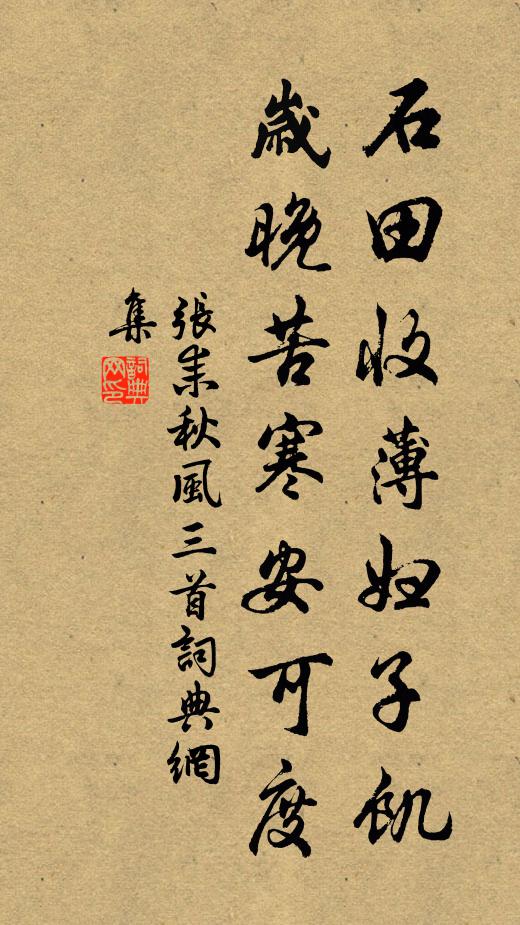 石田收薄婦子飢
歲晚苦寒安可度
張耒秋風三首詞典網
集
詞典
网印